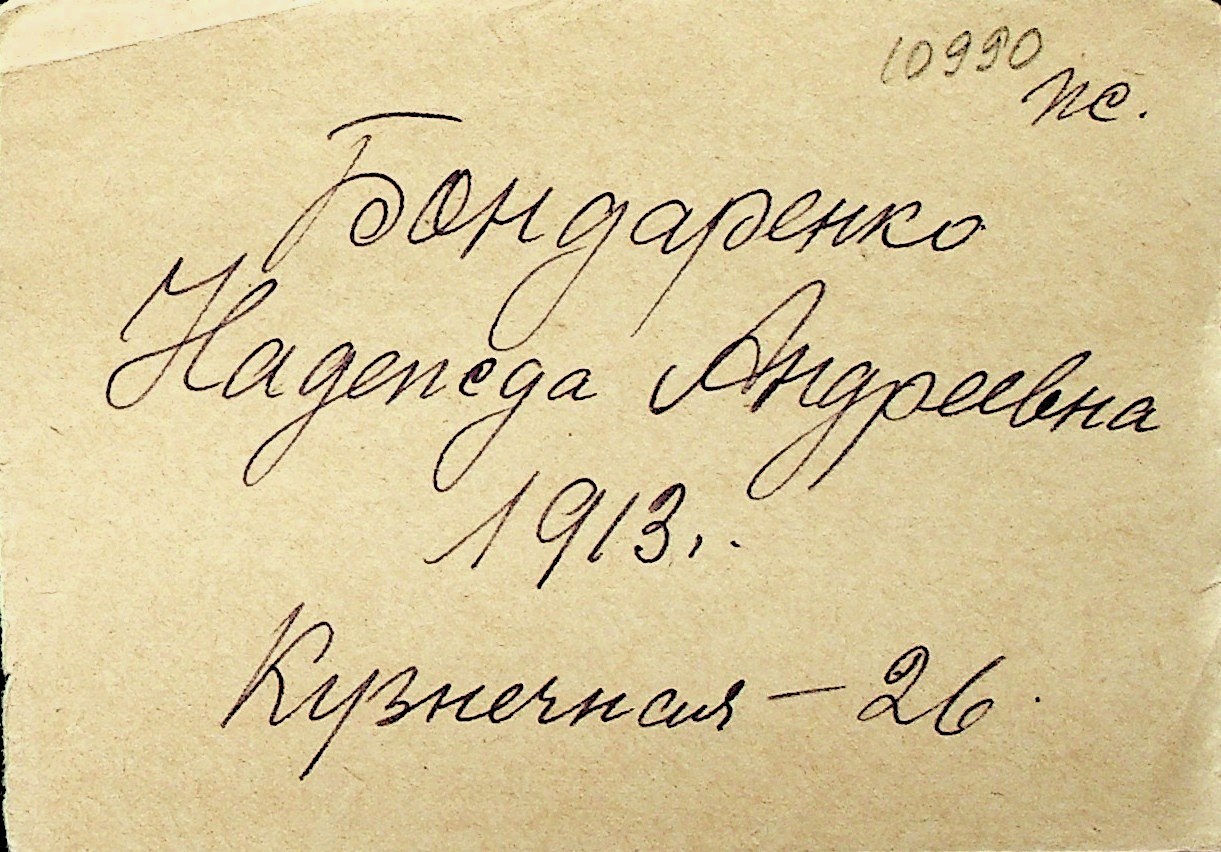 10990
пс.
Бондаренко
Надежда Андреевна
1913г.
Кузнечная – 26.